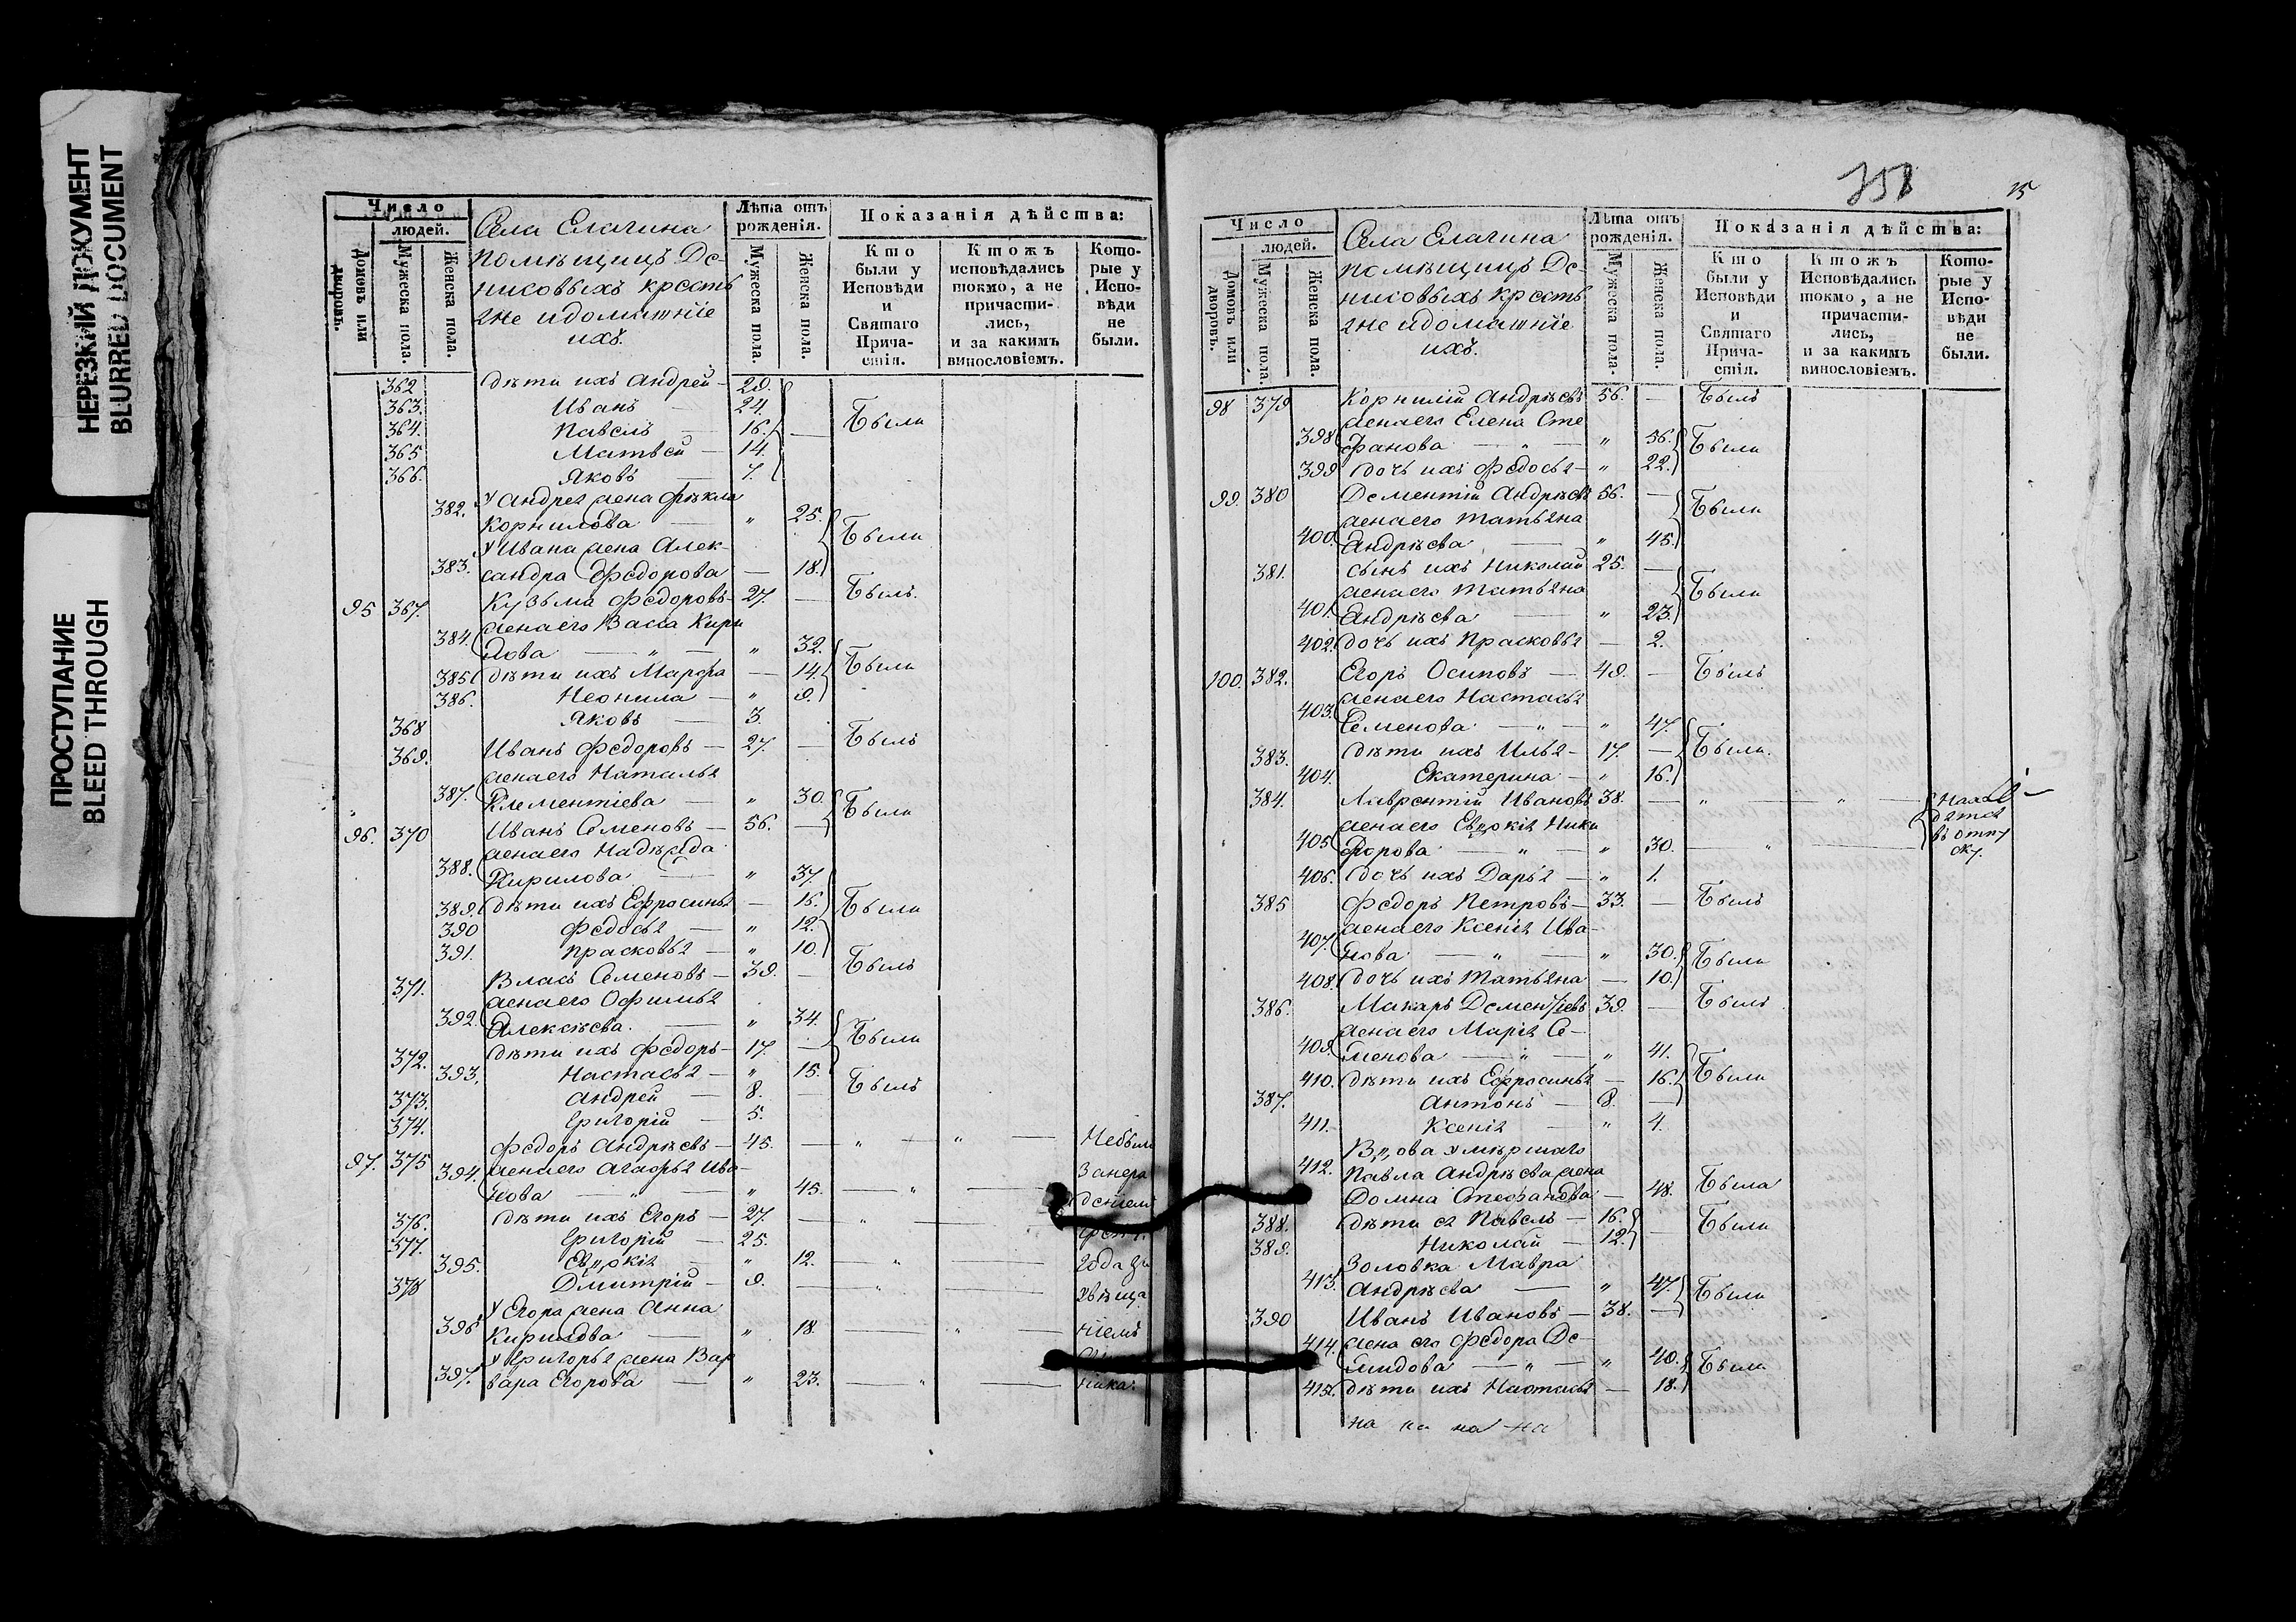 НЕРЕЗКИЙ ДОКУМЕНТ
BLURRED DOCUMENT
ПРОСТУПАНИЕ
BLEED THROUGH
Число
людей.
Домовъ или дворовъ.
Мужеска пола.
Женска пола.
Села Елагина
помѣщицъ Де-
нисовыхъ кресть
яне идомашніе
ихъ.
Лѣта отъ
рожденія.
Мужеска пола.
Женска пола.
Показанія дѣйства:
Кто
были у
Исповѣди
и
Святаго
Прича-
стія.
Ктожъ
исповѣдались
токмо, а не
причасти-
лись,
и за какимъ
винословіемъ.
Кото-
рые у
Испо-
вѣди
не
были.
362 дѣти ихъ Андрей — 29.
363. Иванъ — 24. Были
364. Павелъ — 16. —
365 Матвей — 14.
366. Яковъ — 7.
У Андрея жена Фѣкла
382. Корнилова — " 25. Были
У Ивана жена Алек-
383. сандра Федорова — 18.
95 367. Кузьма Федоровъ — 27. — Былъ.
женаего Васса Кири
384. лова — " — " 32. Были
385 дѣти ихъ Марфа — 14.
386. Неонила — " 9.
368 Яковъ — 3.
369. Иванъ Федоровъ — 27. — Былъ
женаего Наталья
387. Клементіева — " 30. Были
96. 370 Иванъ Семеновъ — 56. —
женаего Надѣжда
388. Кирилова — " 37.
389. дѣти ихъ Ефросинья — 16. Были
390 Федосья — " 12.
391. Прасковья — " 10.
371. Власъ Семеновъ — 39. — Былъ
женаего Офимья
392. Алексѣева. — " 34. Были
372. дѣти ихъ Федоръ — 17. —
393. Настасья — " 15.
373. Андрей — 8. — Былъ
374. Григорій — 5.
97. 375 Федоръ Андрѣевъ — 45. — " — " — Небыли
394. женаего Агафья Ива- Занера
нова — " — " 45. — " — дѣніемъ
376. дѣти ихъ Егоръ — 27. — " —
377. Григорій — 25.
395. Евдокія — " 12. — " — года за
378 Дмитрій — 9. — " — увѣща
У Егора жена Анна
396 Кирилова — " 18. — " — ніемъ
У Григорья жена Вар
397. вара Егорова — " 23. — " —
358 15
Число
людей.
Домовъ или дворовъ.
Мужеска пола.
Женска пола.
Села Елагина
помѣщицъ Де-
нисовыхъ кресть
яне идомашніе
ихъ.
Лѣта отъ
рожденія.
Мужеска пола.
Женска пола.
Показанія дѣйства:
Кто
были у
Исповѣди
и
Святаго
Прича-
стія.
Ктожъ
Исповѣдались
токмо, а не
причасти-
лись,
и за какимъ
винословіемъ.
Кото-
рые у
Испо-
вѣди
не
были.
98 379 Корнилій Андрѣевъ 56. — Былъ
женаего Елена Сте
398 фанова — " — " 56. Были
399 дочь ихъ Федосья — " 22.
99. 380 Дементій Андрѣевъ 56. — Были
женаего Татьяна
400. Андрѣева — " 45.
381. сынъ ихъ Николай 25. — Были
женаего Татьяна
401. Андрѣева — " 23.
402. дочь ихъ Прасковья — 2.
100. 382. Егоръ Осиповъ — 49. — Былъ
женаего Настасья
403. Семенова — " — " 47.
383. дѣти ихъ Илья — 17. — Были.
404. Екатерина — " 16.
384. Лаврентій Ивановъ 38. — " — " — Нахо
женаего Евдокія Ники дятся
405 форова — " — " 30. — " — въ отпу
406. дочь ихъ Дарья — " 1. ску.
385 Федоръ Петровъ — 33. — Былъ
женаего Ксенія Ива-
407. нова — " — " 30. Были
408. дочь ихъ Татьяна — 10.
386. Макаръ Дементіевъ 39. — Былъ
женаего Марія Се-
409. менова — " — " 41.
410. дѣти ихъ Ефросинья — 16. Были
387. Антонъ — 8. —
411. Ксенія — " 4.
Вдова умѣршаго
412. Павла Андрѣева жена
Домна Стефанова — 48. Была
388. дѣти ея Павелъ — 16. — Были
389. Николай — 12.
Золовка Мавра
413. Андрѣева — " 47. Были
390 Иванъ Ивановъ — 38. —
414. жена его Федора Де-
мидова — " — " 40. Были
415. дѣти ихъ Настасья — 18.
на на на на